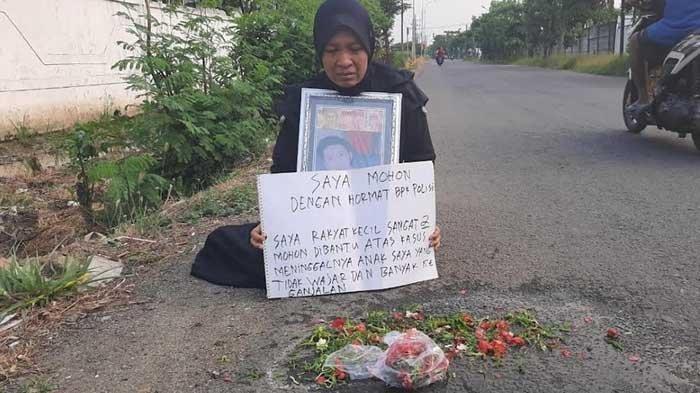 SAYA MOHON
DENGAN HORMAT BPK POLISI
SAYA RAKYAT KECIL SANGAT2
MOHON DIBANTU ATAS KASUS
MENINGGALNYA ANAK SAYA YANG
TIDAK WAJAR DAN BANYAK KE
GANJALAN